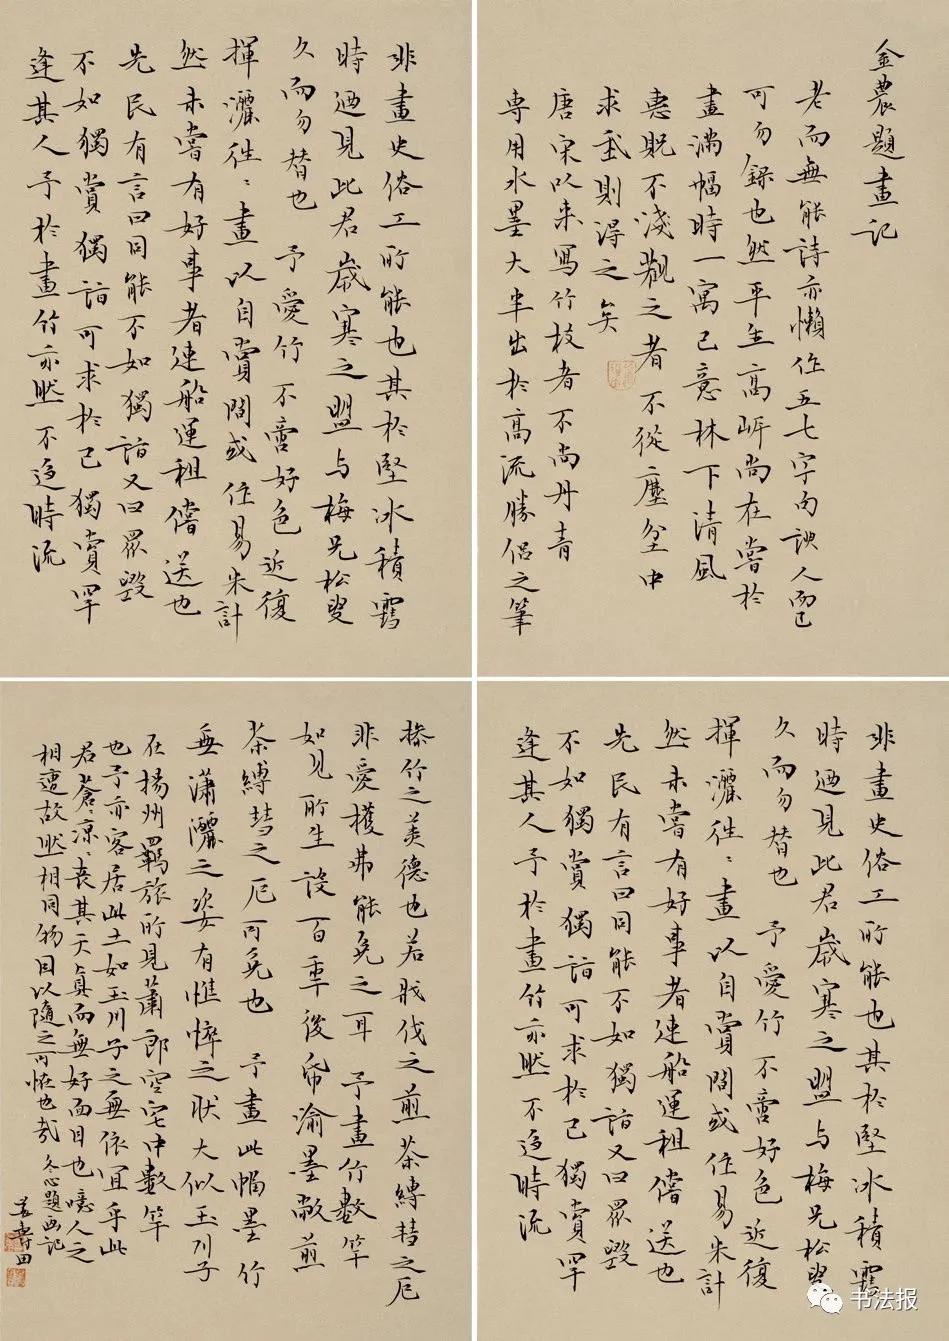 金農題畫記
老而無能詩亦懶作五七字句諛人而已
可勿錄也然平生高岸尚在嘗於
畫滿幅時一寓己意林下清風
惠貺不淺觀之者不從塵坌中
求我則得之矣
唐宋以来寫竹枝者不尚丹青
専用水墨大半出於高流勝侶之筆
非畫史俗工所能也其於堅冰積雪
時迺見此君歲寒之盟与梅兄松叟
久而勿替也 予愛竹不啻好色近復
揮灑往〻畫以自賞間或作易米計
然未嘗有好事者連船運租償送也
先民有言曰同能不如獨詣又曰眾毀
不如獨賞獨詣可求於己獨賞罕
逢其人予於畫竹亦然不逐時流
非畫史俗工所能也其於堅冰積雪
時迺見此君歲寒之盟与梅兄松叟
久而勿替也 予愛竹不啻好色近復
揮灑往〻畫以自賞間或作易米計
然未嘗有好事者連船運租償送也
先民有言曰同能不如獨詣又曰眾毀
不如獨賞獨詣可求於己獨賞罕
逢其人予於畫竹亦然不逐時流
操竹之美德也若戕伐之煎茶縛彗之厄
非愛護弗能免之耳 予畫竹數竿
如見所生設百季後帋渝墨敝煎
茶縛彗之厄可免也 予畫此幅墨竹
無瀟灑之姿有憔悴之狀大似玉川子
在揚州羈旅所見蕭郎空宅中數竿
也予亦客居此土如玉川子之無依宜乎此
君蒼〻涼〻喪其天真而無好面目也噫人之
相遭故然相同物因以隨之可怪也哉 冬心題画記
壽田
书法报